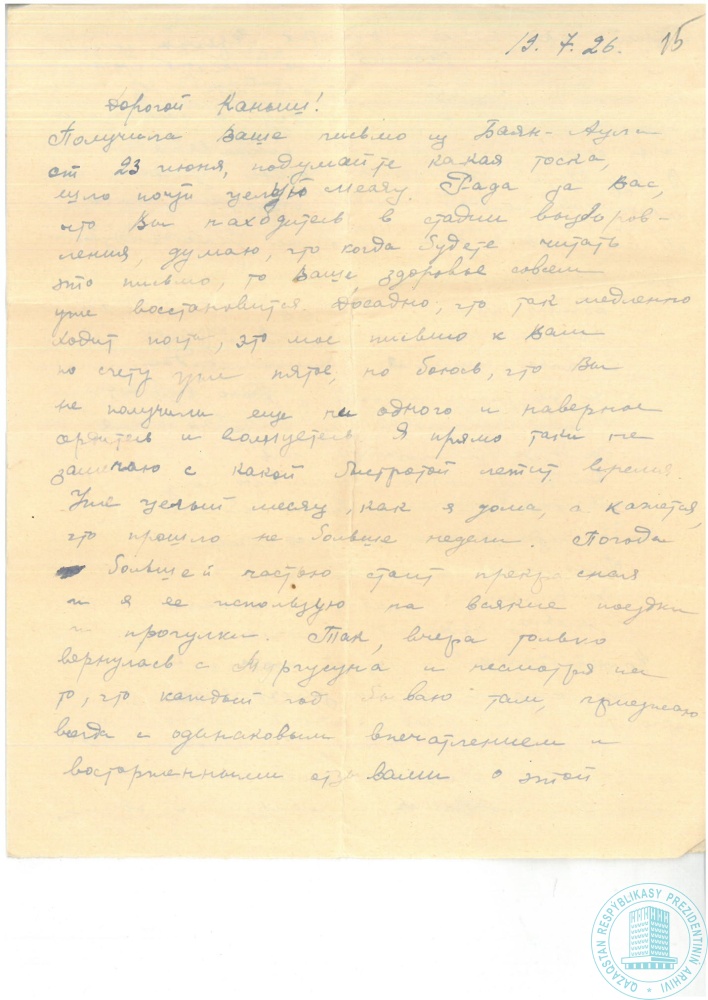 19. 7. 26. 15
Дорогой Каныш!
Получила Ваше письмо из Баян-Аула
от 23 июня, подумайте какая тоска,
шло почти целый месяц. Рада за Вас,
что Вы находитесь в стадии выздоров-
ления, думаю, что когда будете читать
это письмо, то Ваше здоровье совсем
уже восстановится. Досадно, что так медленно
ходит почта, это мое письмо к Вам
по счету уже пятое, но боюсь, что Вы
не получили еще ни одного и наверное
сердитесь и волнуетесь. Я прямо таки не
замечаю с какой быстротой летит время.
Уже целый месяц, как я дома, а кажется,
что прошло не больше недели. Погода
большей частью стоит прекрасная
и я ее использую на всякие поездки
и прогулки. Так, вчера только
вернулась с и несмотря на
то, что каждый год бываю там, приезжаю
всегда с одинаковым впечатлением и
восторженными отзывами о этой
QAZAQSTAN RESPÝBLIKASY PREZIDENTINIŃ ARHIVI